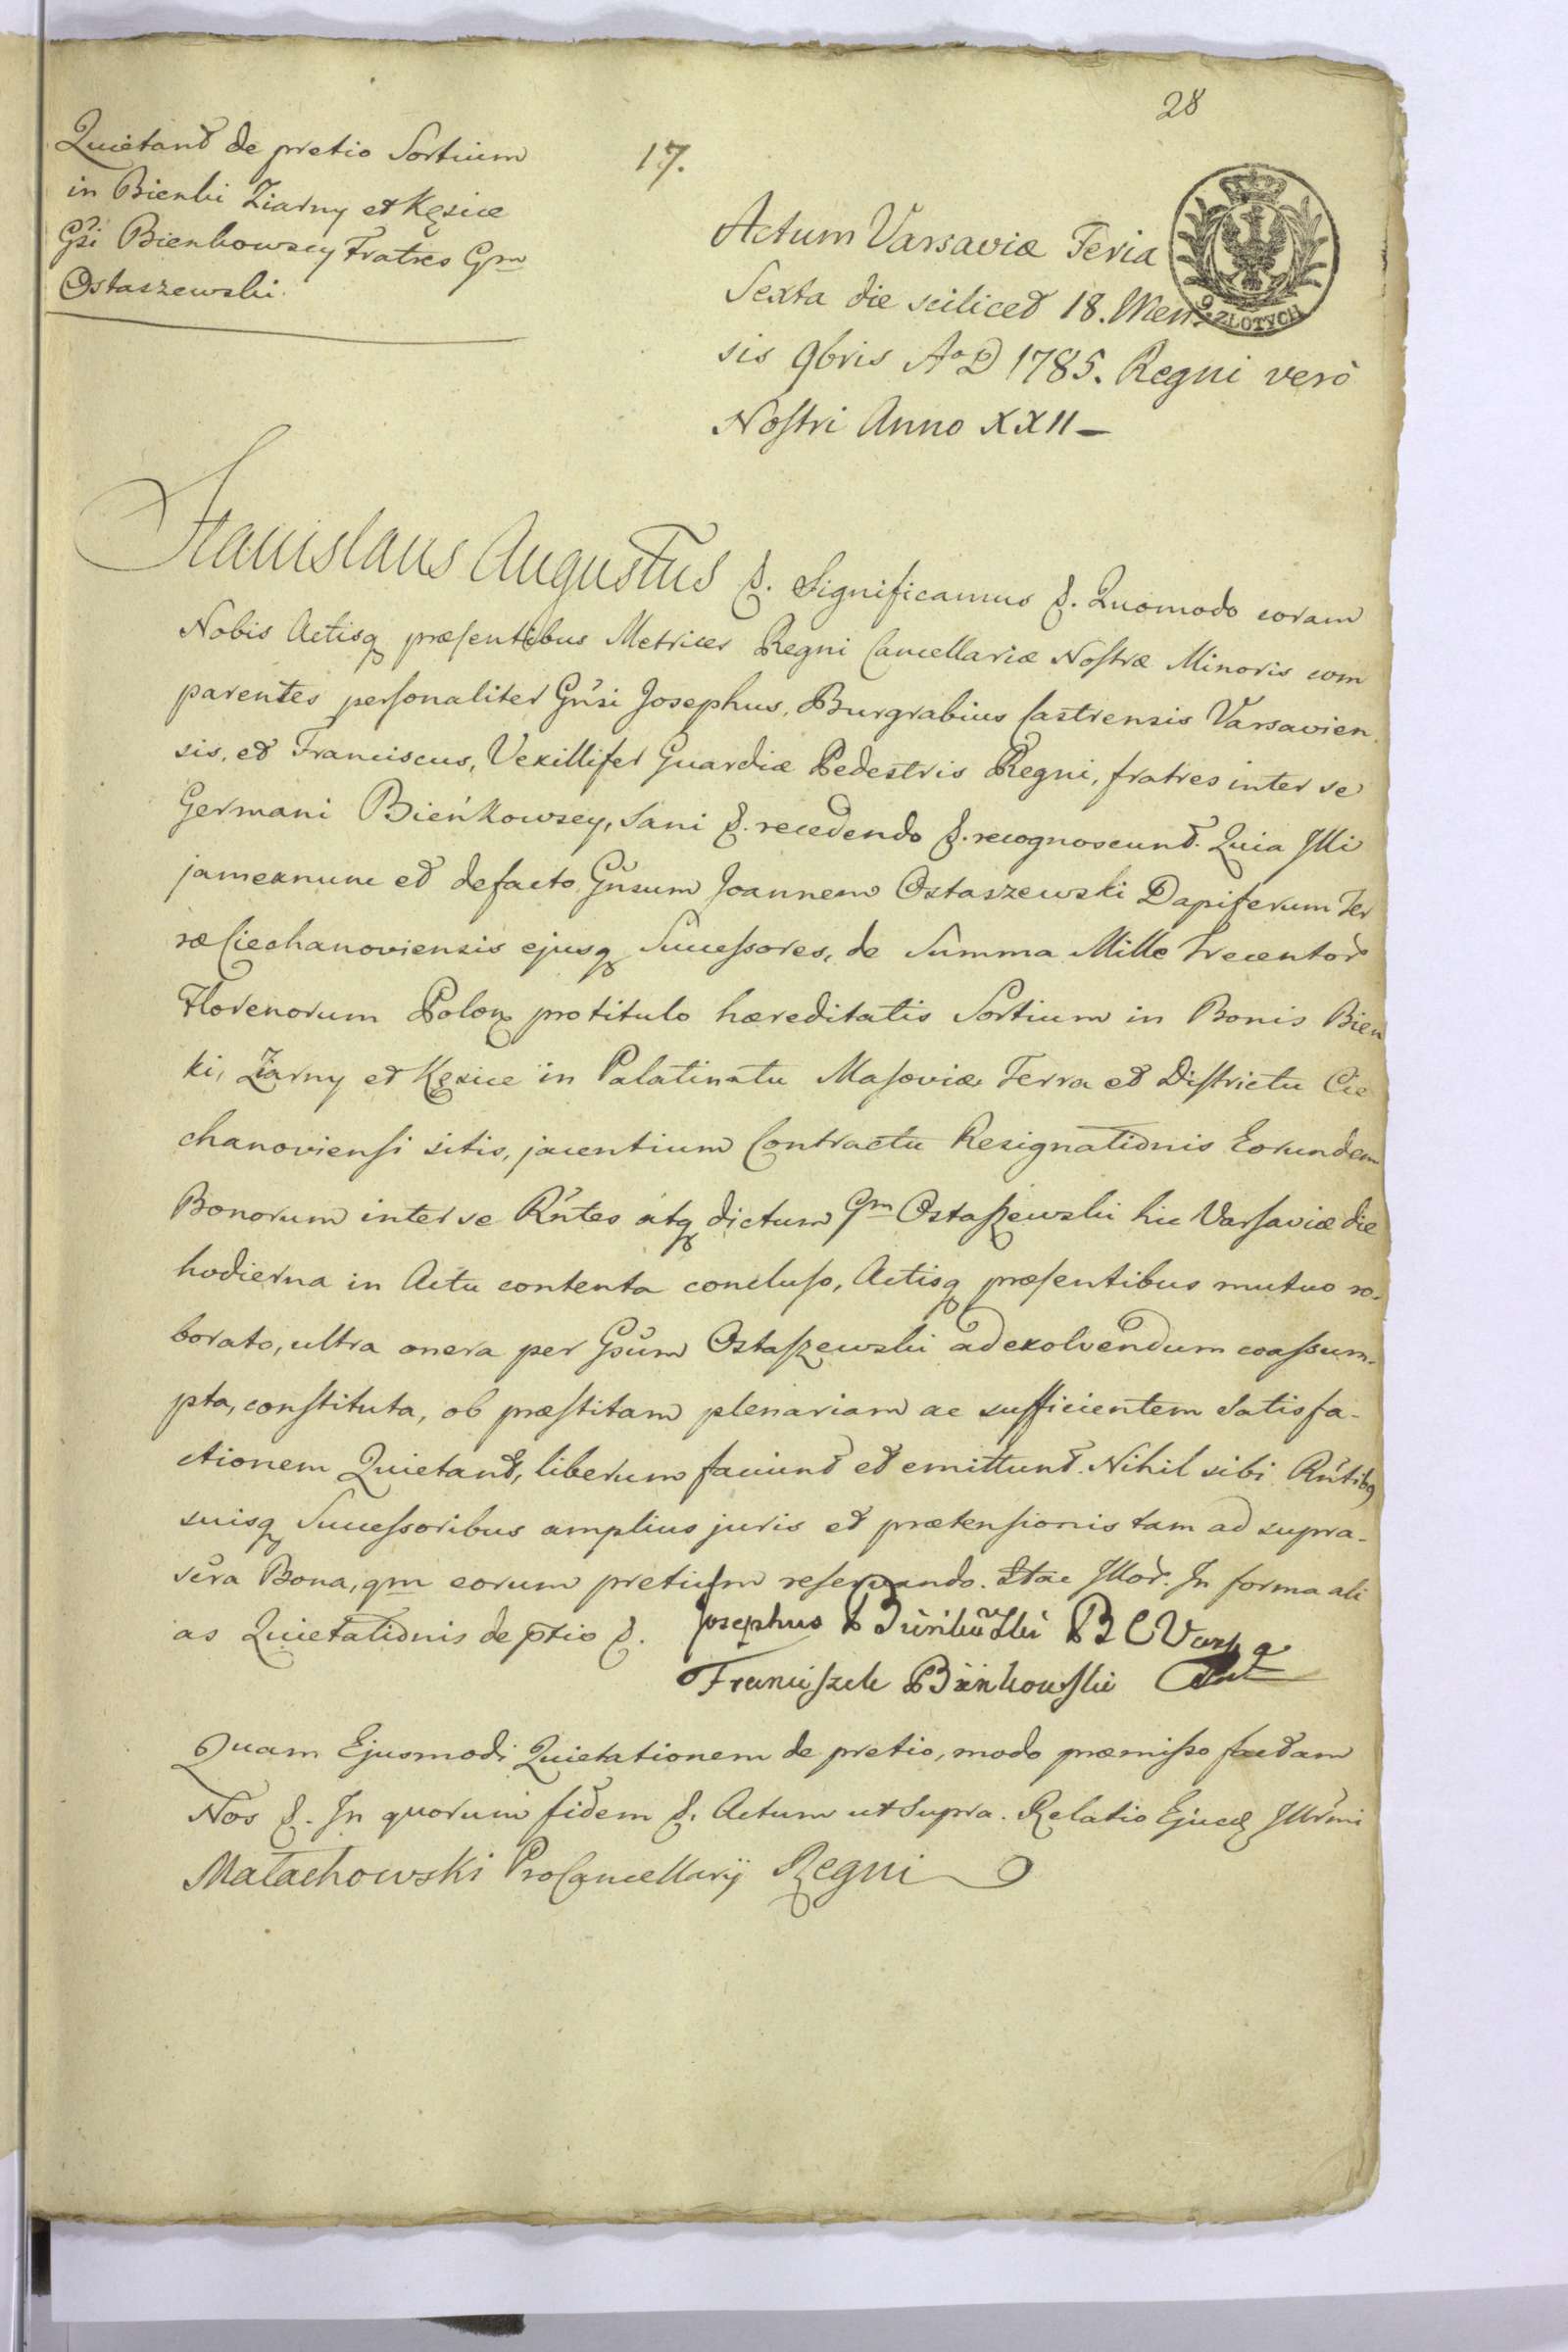 28
Quietant de pretio Sortium
in Bienki Ziarny et Kęsice
Gsi Bienkowscy Fratres Gm
Ostaszewski.
17.
Actum Varsaviæ Feria
Sexta die scilicet 18. Men-
sis 9bris Ao D 1785. Regni verò
Nostri Anno XXII
9. ZŁOTYCH
Stanislaus Augustus &. Significamus &. Quomodo coram
Nobis Actisq præsentibus Metrices Regni Cancellariæ Nostræ Minoris com
parentes personaliter Gnsi Josephus, Burgrabius Castrensis Varsavien
sis, et Franciscus, Vexillifer Guardiæ Pedestris Regni, fratres inter se
Germani Bieńkowscy, Sani &. recedendo &. recognoscunt. Quia Illi
jamexnunc et defacto Gnsum Joannem Ostaszewski Dapiferum Ter
ræ Ciechanoviensis ejusq Successores, de Summa Mille Trecentor
Florenorum Polon protitulo hæreditatis Sortium in Bonis Bien
ki, Ziarny et Kęsice in Palatinatu Masoviæ Terra et Districtu Cie
chanoviensi sitis, jacentium Contractu Resignationis Eorundem
Bonorum inter se Rntes atq dictum Gm Ostaszewski hic Varsaviæ die
hodierna in Actu contenta concluso, Actisq præsentibus mutuo ro-
borato, ultra onera per Gsum Ostaszewski adexolvendum coassum-
pta, constituta, ob præstitam plenariam ac sufficientem Satisfa-
ctionem Quietant, liberum faciunt et emittunt. Nihil sibi Rntibq
suisq Successoribus amplius juris et prætensionis tam ad supra-
scra Bona, qm eorum pretium reservando. Stae Illor. In forma ali
as Quietationis de ptio &. Josephus Bieńkowski B C Vars
Franciszek Bieńkowski
Quam Ejusmodi Quietationem de pretio, modo præmisso factam
Nos &. In quorum fidem &. Actum ut Supra. Relatio Ejusd Illrmi
Małachowski ProCancellarij Regni